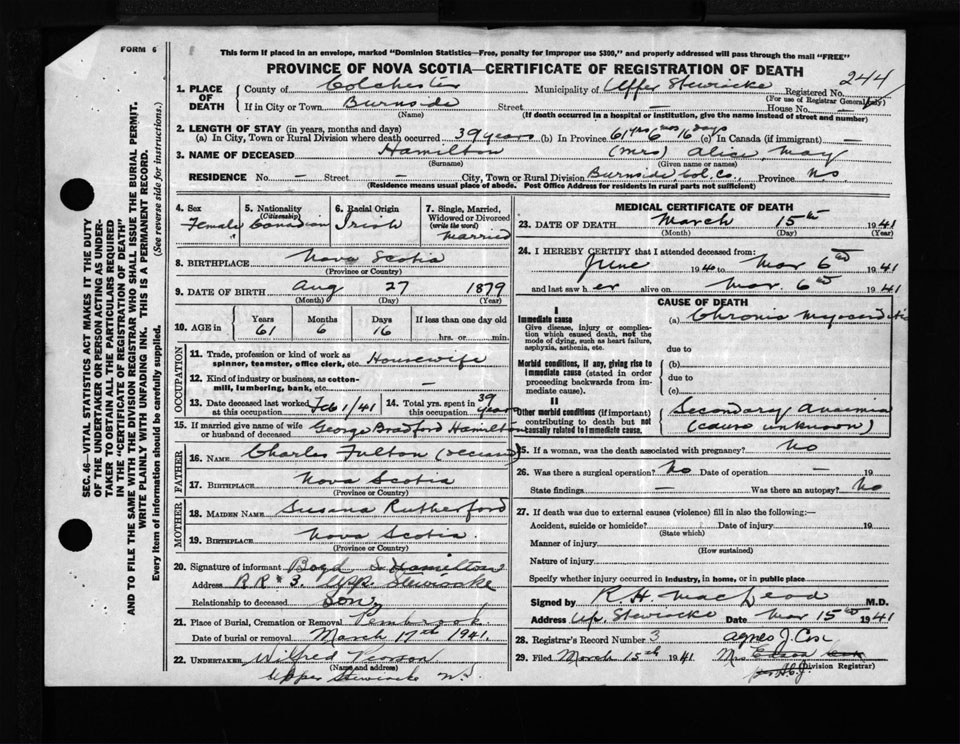 FORM 6
This form if placed in an envelope, marked "Dominion Statistics—Free, penalty for improper use $300," and properly addressed will pass through the mail "FREE"
PROVINCE OF NOVA SCOTIA—CERTIFICATE OF REGISTRATION OF DEATH
244
1. PLACE OF DEATH
County of Colchester Municipality of Upper Stewiacke Registered No.
(For use of Registrar General only)
If in City or Town Burnside Street — House No. —
(Name) (If death occurred in a hospital or institution, give the name instead of street and number)
2. LENGTH OF STAY (in years, months and days)
(a) In City, Town or Rural Division where death occurred 39 years (b) In Province 61 yrs 6 mos 16 days (c) In Canada (if immigrant) —
3. NAME OF DECEASED Hamilton (Mrs) Alice May
(Surname) (Given name or names)
RESIDENCE No. — Street — City, Town or Rural Division Burnside, Col. Co., Province NS
(Residence means usual place of abode. Post Office Address for residents in rural parts not sufficient)
4. Sex Female
5. Nationality (Citizenship) Canadian
6. Racial Origin Irish
7. Single, Married, Widowed or Divorced (write the word) Married
8. BIRTHPLACE Nova Scotia
(Province or Country)
9. DATE OF BIRTH Aug 27 1879
(Month) (Day) (Year)
10. AGE in Years Months Days If less than one day old
61 6 16 hrs. or min.
OCCUPATION
11. Trade, profession or kind of work as spinner, teamster, office clerk, etc. Housewife
12. Kind of industry or business, as cotton-mill, lumbering, bank, etc. —
13. Date deceased last worked at this occupation Feb 1/41
14. Total yrs. spent in this occupation 39 years
15. If married give name of wife or husband of deceased George Bradford Hamilton
FATHER
16. NAME Charles Fulton (deceased)
17. BIRTHPLACE Nova Scotia
(Province or Country)
MOTHER
18. MAIDEN NAME Susana Rutherford
19. BIRTHPLACE Nova Scotia.
(Province or Country)
20. Signature of informant Hamilton
Address R R # 3. Upp. Stewiacke
Relationship to deceased Son
21. Place of Burial, Cremation or Removal Pembrook
Date of burial or removal March 17th 1941.
22. UNDERTAKER Wilfred Pearson
(Name and address)
Upper Stewiacke N.S.
MEDICAL CERTIFICATE OF DEATH
23. DATE OF DEATH March 15th 1941
(Month) (Day) (Year)
24. I HEREBY CERTIFY that I attended deceased from:
June 1940 to Mar 6th 1941
and last saw her alive on Mar. 6th 1941
CAUSE OF DEATH
I
Immediate cause
Give disease, injury or complication which caused death, not the mode of dying, such as heart failure, asphyxia, asthenia, etc.
(a) Chronic Myocarditis
due to
Morbid conditions, if any, giving rise to immediate cause (stated in order proceeding backwards from immediate cause).
(b)
due to
(c)
II
Other morbid conditions (if important) contributing to death but not causally related to immediate cause.
Secondary Anaemia
(cause unknown)
25. If a woman, was the death associated with pregnancy? No
26. Was there a surgical operation? No Date of operation — 19
State findings — Was there an autopsy? No
27. If death was due to external causes (violence) fill in also the following:—
Accident, suicide or homicide? Date of injury 19
(State which)
Manner of injury
(How sustained)
Nature of injury
Specify whether injury occurred in industry, in home, or in public place
Signed by K.H. MacLeod M.D.
Address Up. Stewiacke Date Mar 15th 1941
28. Registrar's Record Number 3
Agnes J. Cox
29. Filed March 15th 1941 Mrs
(Division Registrar)
SEC. 46—VITAL STATISTICS ACT MAKES IT THE DUTY
OF THE UNDERTAKER OR PERSON ACTING AS UNDER-
TAKER TO OBTAIN ALL THE PARTICULARS REQUIRED
IN THE "CERTIFICATE OF REGISTRATION OF DEATH"
AND TO FILE THE SAME WITH THE DIVISION REGISTRAR WHO SHALL ISSUE THE BURIAL PERMIT.
WRITE PLAINLY WITH UNFADING INK. THIS IS A PERMANENT RECORD.
Every item of information should be carefully supplied. (See reverse side for instructions.)